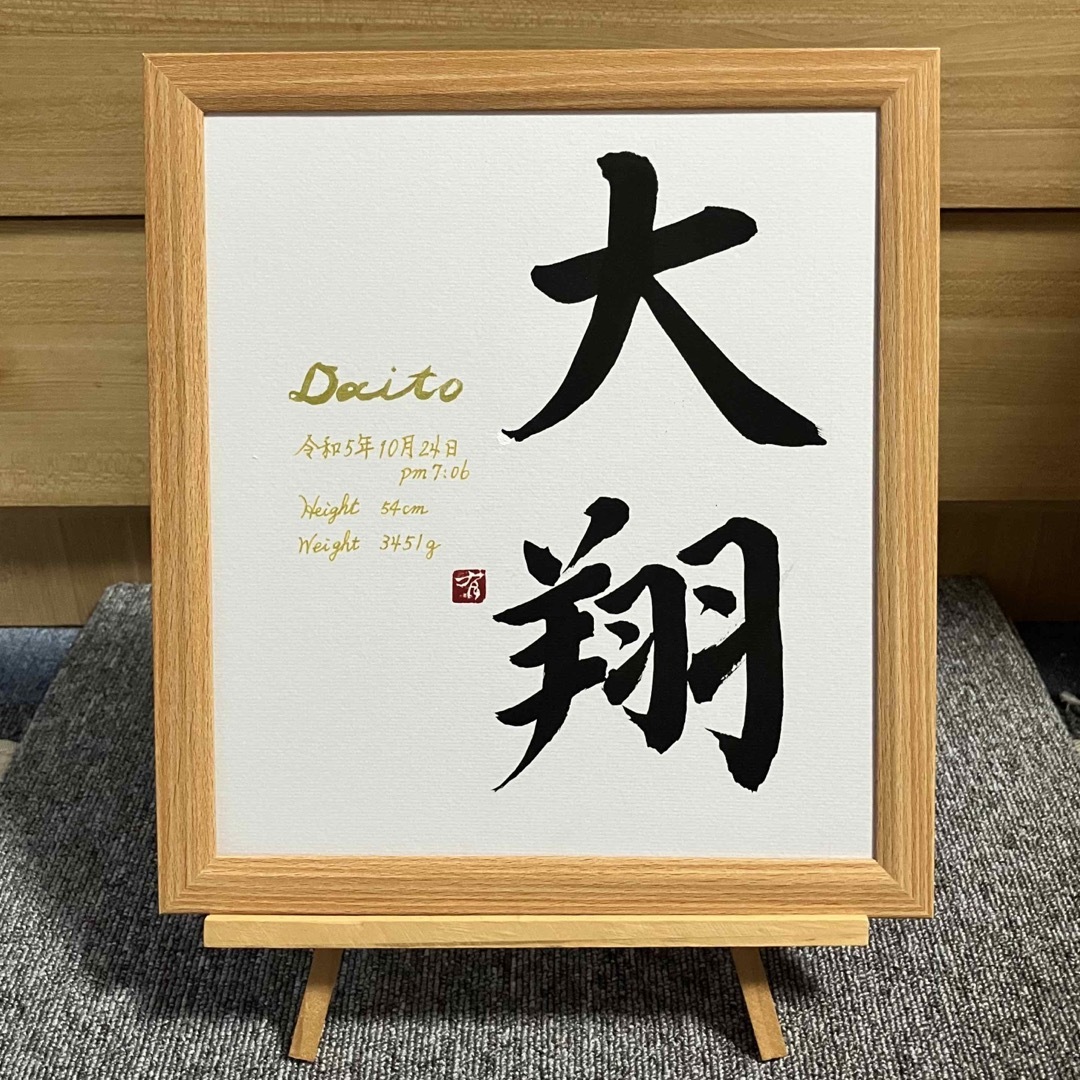 大翔
Daito
令和5年10月24日
pm7:06
Height 54cm
Weight 3451g
有